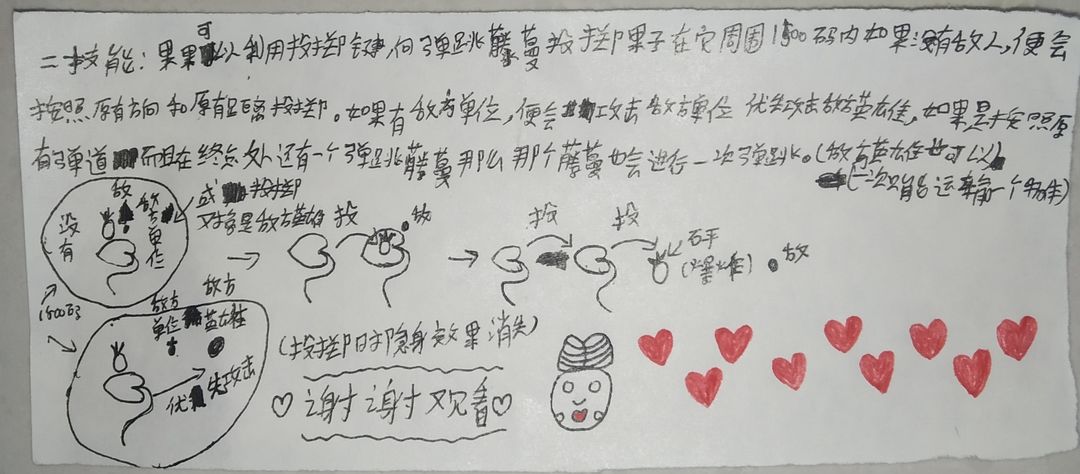 二技能：果果可以利用投掷键向弹跳藤蔓投掷果子在它周围1500码内如果没有敌人，便会
按照原有方向和原有距离投掷。如果有敌方单位，便会攻击敌方单位 优先攻击敌方英雄，如果是按照原
有弹道而且在终点处还有一个弹跳藤蔓那么那个藤蔓也会进行一次弹跳。(敌方英雄也可以)
(一次只能运输一个物体)
没有
敌
敌方单位
成投掷
对象是敌方英雄
投
敌
投
投
石平
(爆炸)
敌
1500码
敌方单位
敌方英雄
优先攻击
(投掷时隐身效果消失)
♡谢谢观看♡